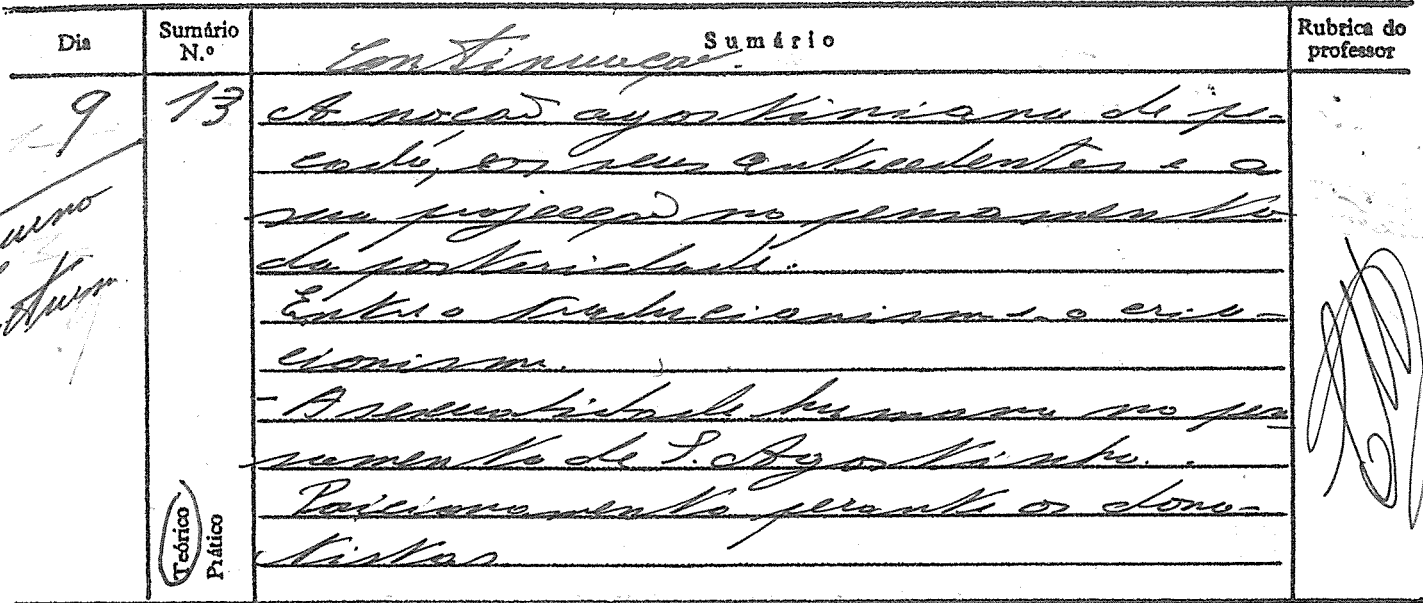 Dia
Sumário N.º
Sumário
Rubrica do professor
Continuação.
9
13
A noção agostiniana de pe-
cado, os seus antecedentes e a
sua projecção no pensamento
da posteridade.
Entre o traducionismo e o cria-
cionismo.
- A sexualidade humana no pen
samento de S. Agostinho.
Posicionamento perante os dona-
tistas
Teórico
Prático